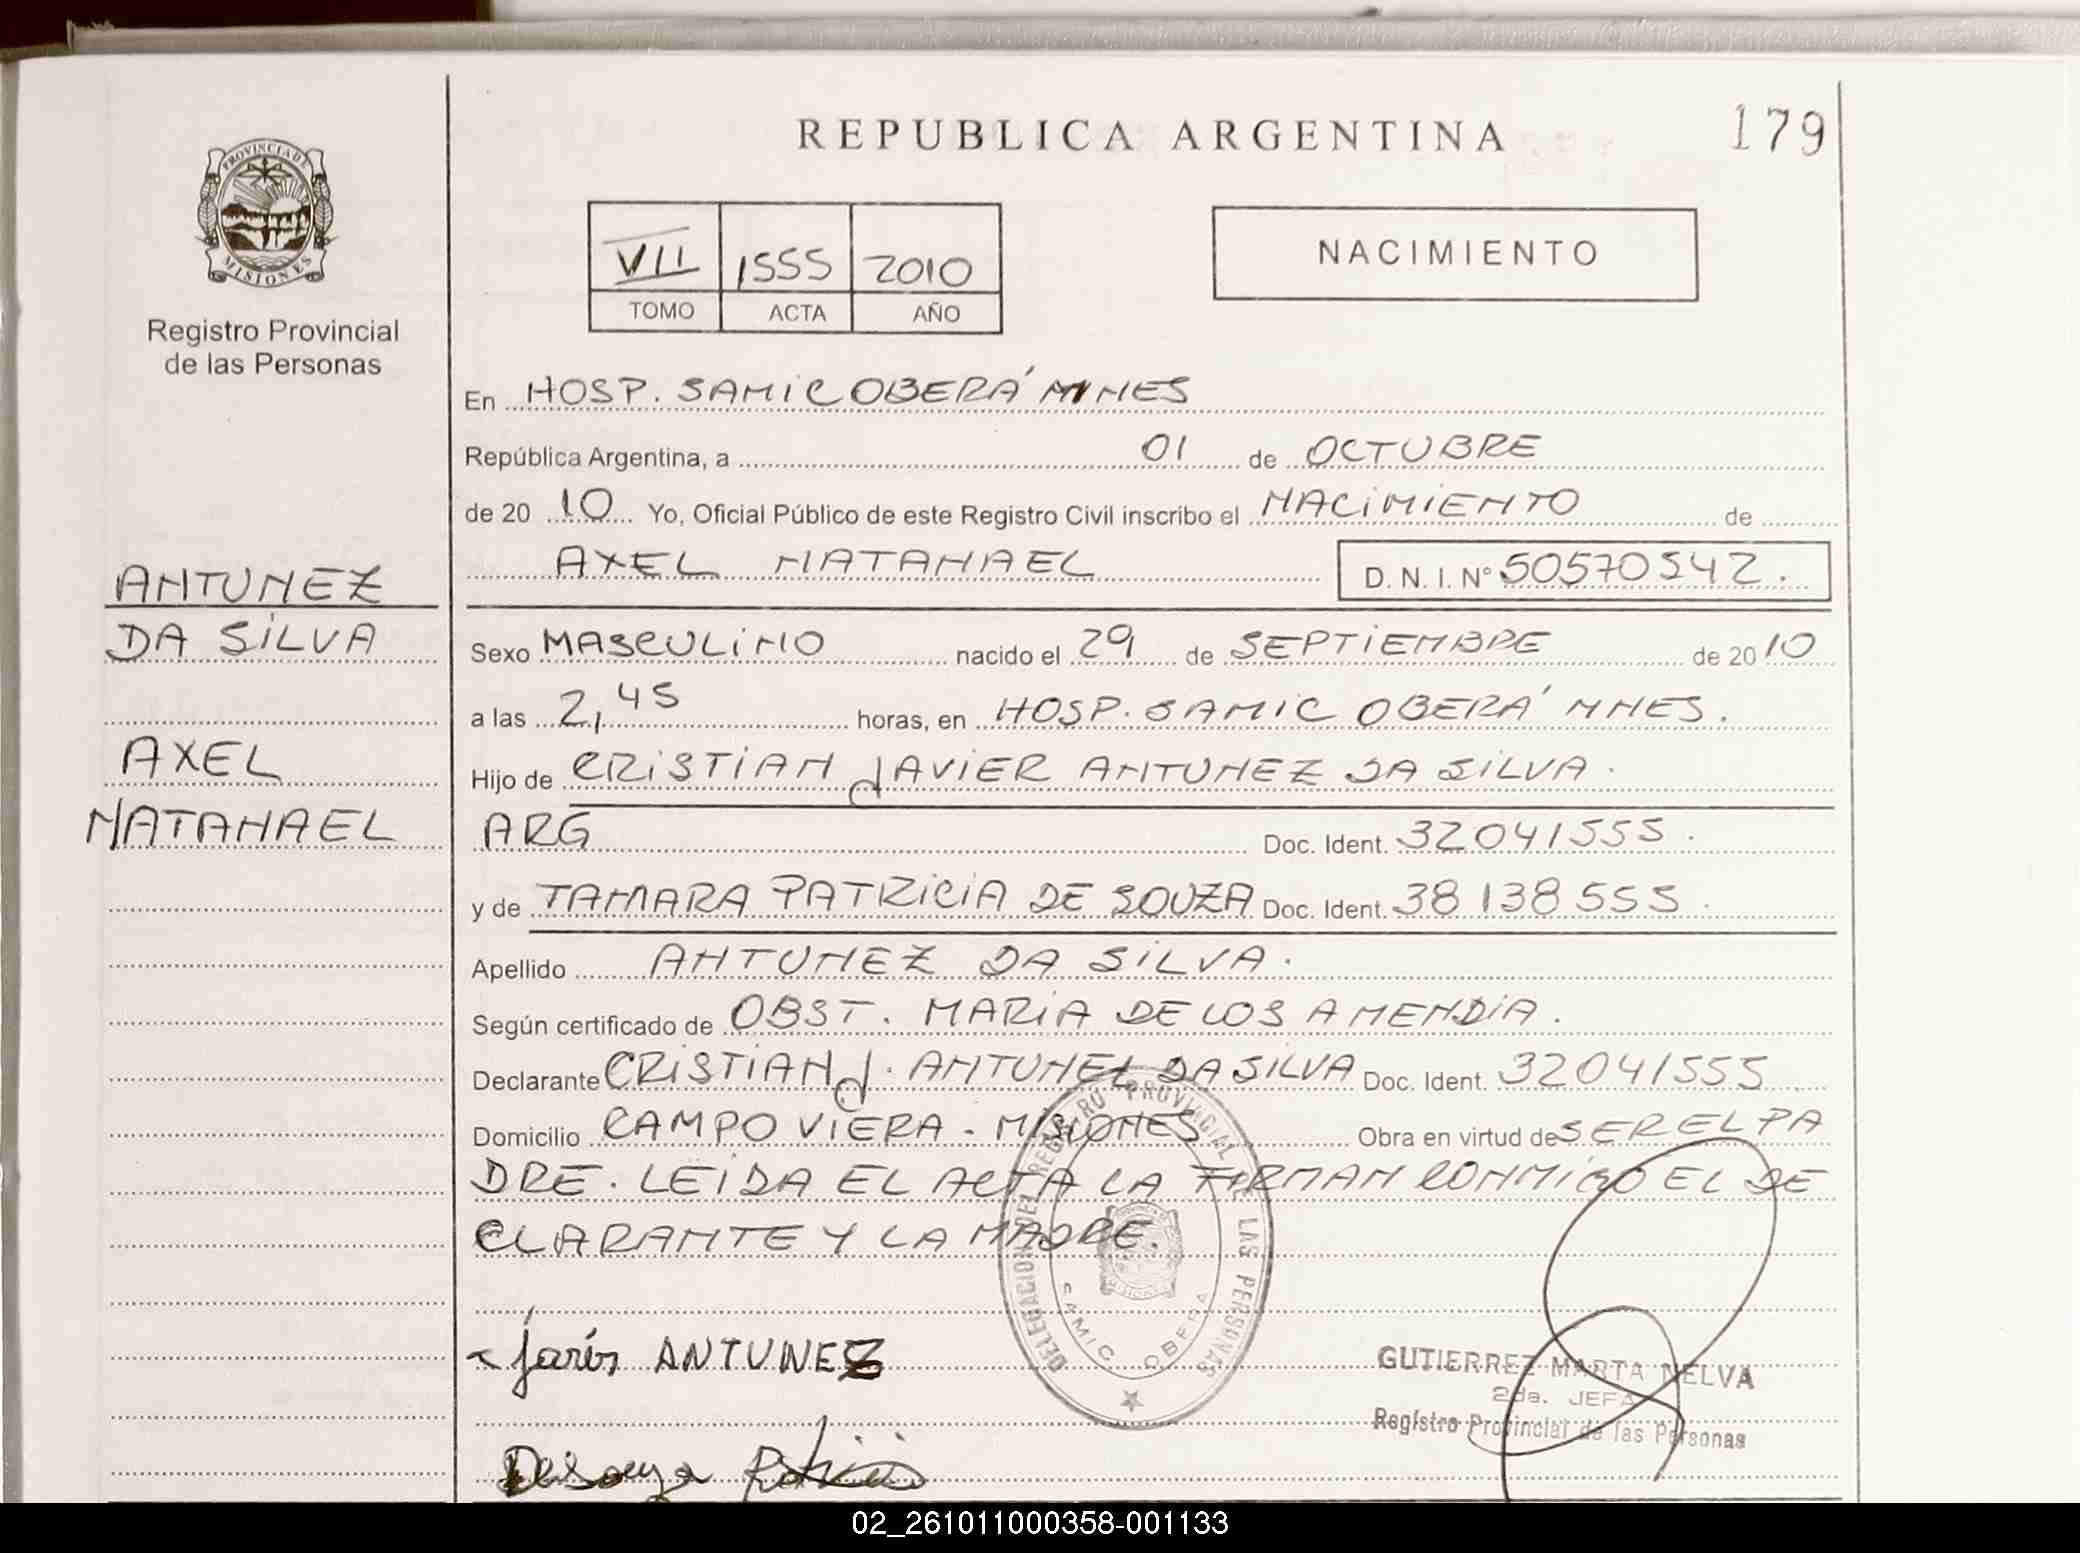 REPUBLICA ARGENTINA
179
PROVINCIA DE
MISIONES
Registro Provincial
de las Personas
VII 1555 2010
TOMO ACTA AÑO
NACIMIENTO
En HOSP. SAMIC OBERÁ MNES
República Argentina, a 01 de OCTUBRE
de 20 10 Yo, Oficial Público de este Registro Civil inscribo el NACIMIENTO de
AXEL NATANAEL D. N. I. Nº 50570542.
ANTUNEZ
DA SILVA
AXEL
NATANAEL
Sexo MASCULINO nacido el 29 de SEPTIEMBRE de 20 10
a las 2,45 horas, en HOSP. SAMIC OBERÁ MNES.
Hijo de CRISTIAN JAVIER ANTUNEZ DA SILVA.
ARG Doc. Ident. 32041555.
y de TAMARA PATRICIA DE SOUZA Doc. Ident. 38138555.
Apellido ANTUNEZ DA SILVA.
Según certificado de OBST. MARIA DE LOS A MENDIA.
Declarante CRISTIAN J. ANTUNEZ DA SILVA Doc. Ident. 32041555
Domicilio CAMPO VIERA - MISIONES Obra en virtud de SER EL PA
DRE. LEIDA EL ACTA LA FIRMAN CONMIGO EL DE
CLARANTE Y LA MADRE.
DELEGACION DEL REGISTRO PROVINCIAL DE LAS PERSONAS
SAMIC OBERA
ANTUNEZ
GUTIERREZ MARTA NELVA
2da. JEFA
Registro Provincial de las Personas
02_261011000358-001133